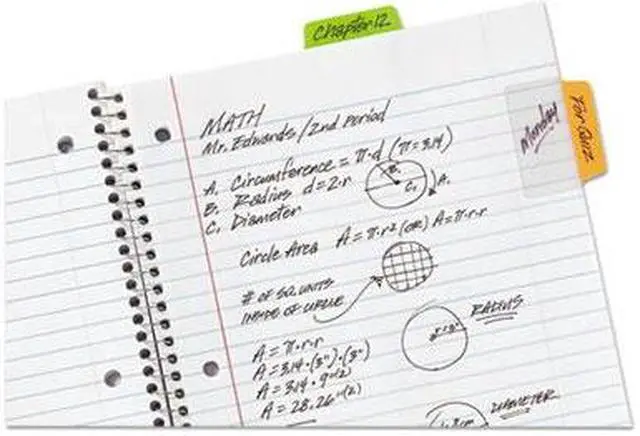 Chapter 12
For Quiz
Monday
MATH
Mr. Edwards / 2nd Period
A. Circumference = π·d (π = 3.14)
B. Radius d = 2·r
C. Diameter
B.
C.
A.
Circle Area A = π·r² (OR) A = π·r·r
# OF SQ. UNITS
INSIDE OF CIRCLE
RADIUS
r=3"
A = π·r·r
A = 3.14·(3")·(3")
A = 3.14·9"(2)
A = 28.26"(2)
DIAMETER